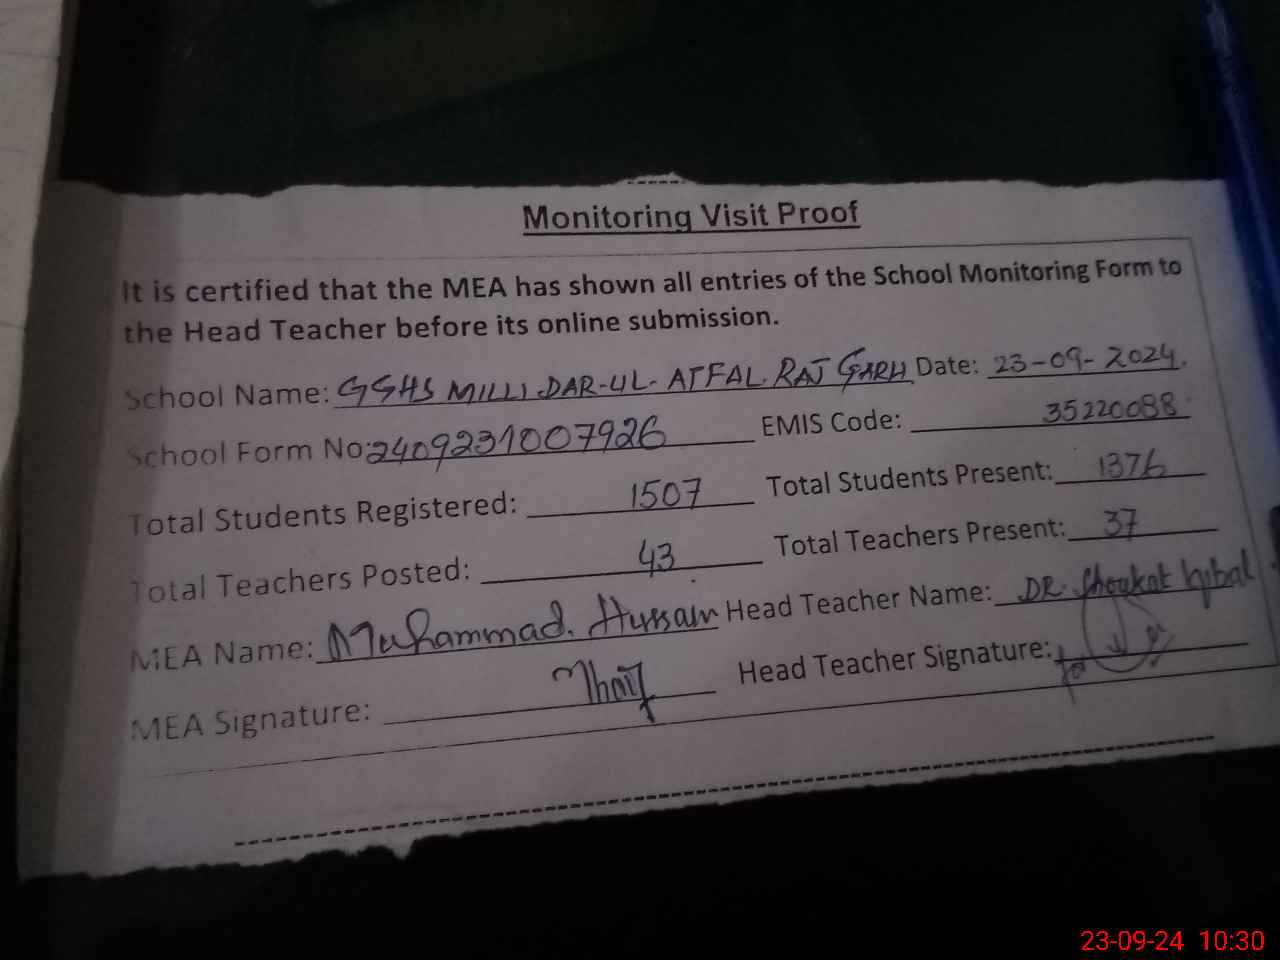 Monitoring Visit Proof
It is certified that the MEA has shown all entries of the School Monitoring Form to
the Head Teacher before its online submission.
School Name: GGHS MILLI DAR-UL-ATFAL RAJ GARH Date: 23-09-2024.
School Form No: 2409231007926 EMIS Code: 35220088
Total Students Registered: 1507 Total Students Present: 1376
Total Teachers Posted: 43 Total Teachers Present: 37
MEA Name: Muhammad. Hussain Head Teacher Name: DR. Shoukat Iqbal
MEA Signature: Head Teacher Signature:
23-09-24 10:30